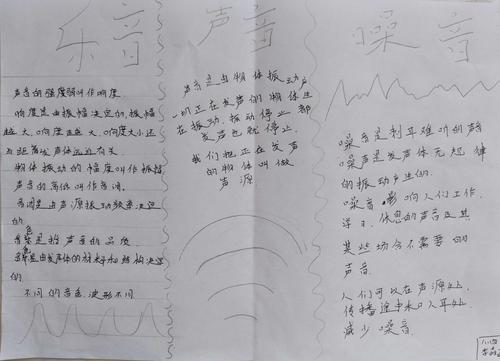 乐音
声音的强度弱叫作响度.
响度是由振幅决定的,振幅
越大,响度越大,响度大小还
与距离发声体远近有关
物体振动的幅度叫作振幅
声音的高低叫作音调.
音调是由声源振动频率决定
的
音色是指声音的品质
音色是由发声体的材料和结构决定
的.
不同的音色,波形不同.
声音
声音是由物体振动产
一切正在发声的物体都
在振动.振动停止
发声也就停止.
我们把正在发声
的物体叫做
声源.
噪音
噪音是刺耳难听的声音
噪声是发声体无规律
的振动产生的.
噪音影响人们工作,
学习,休息的声音及其
某些场合不需要的
声音.
人们可以在声源处,
传播途中和人耳处
减少噪音.